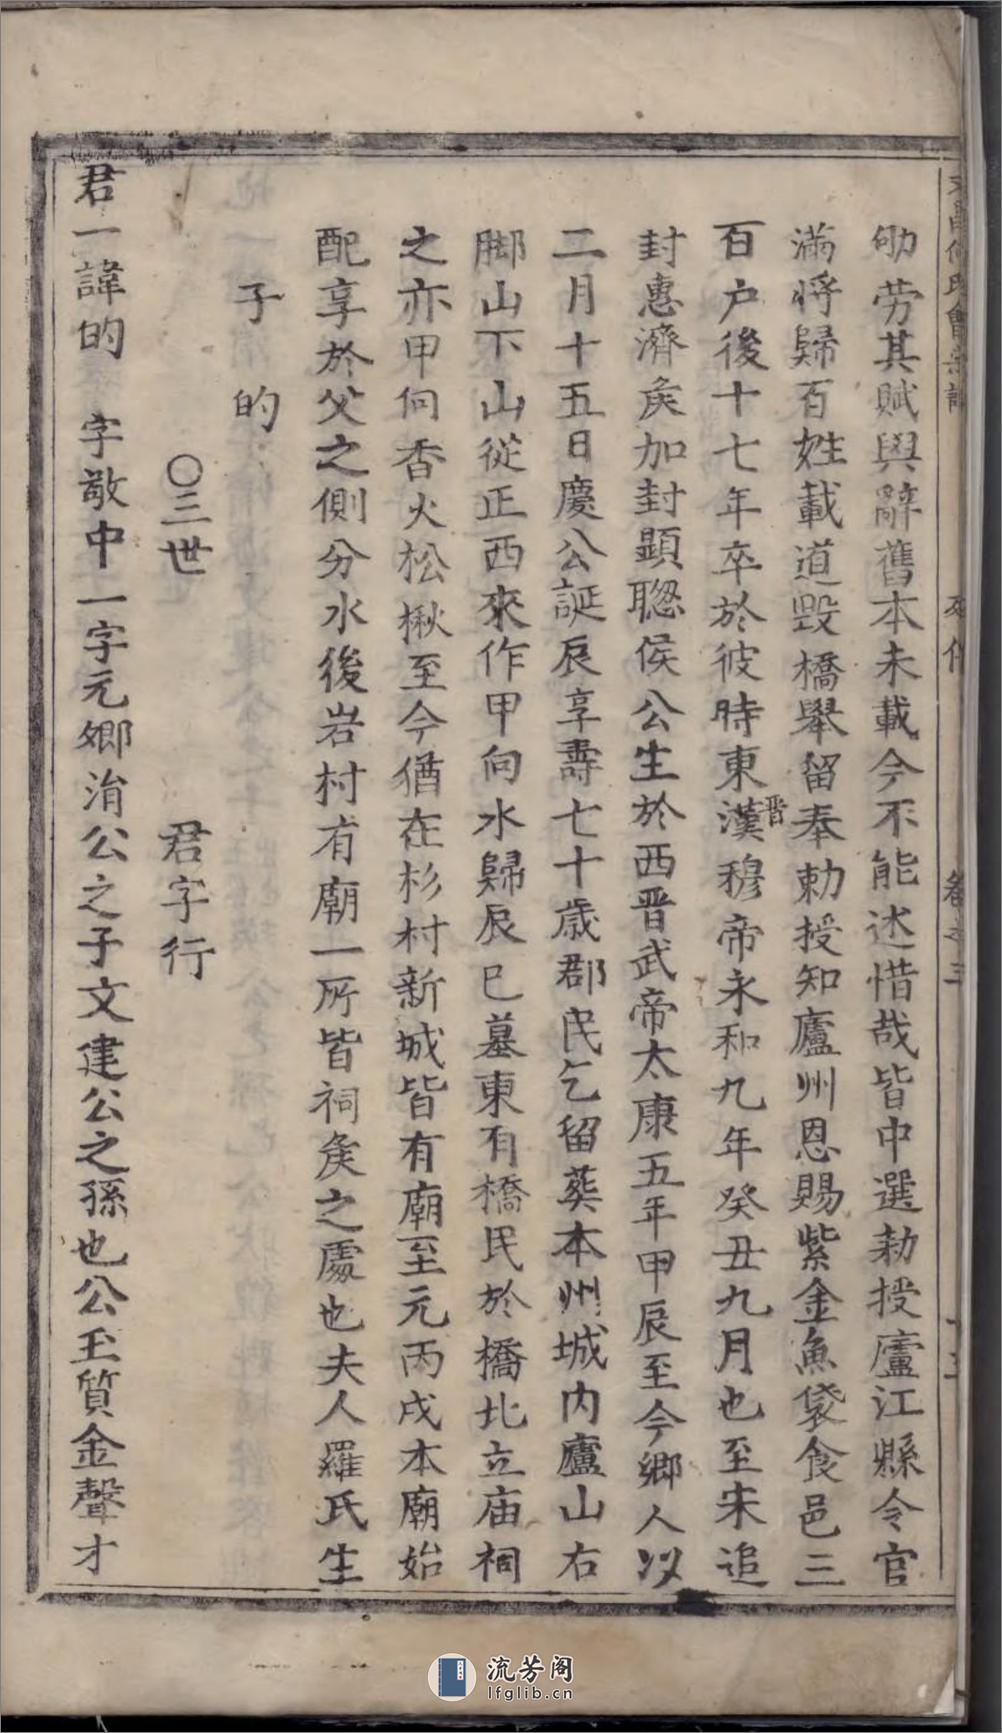 劬劳其賦與辭舊本未載今不能述惜哉皆中選勅授廬江縣令官
滿將歸百姓載道毀橋舉留奉勅授知廬州恩賜紫金魚袋食邑三
百户後十七年卒於彼時東漢晋穆帝永和九年癸丑九月也至宋追
封惠濟矦加封顕聦侯公生於西晋武帝太康五年甲辰至今鄉人以
二月十五日慶公誕辰享壽七十歳郡民乞留葬本州城内廬山右
脚山下山從正西來作甲向水歸辰巳墓東有橋民於橋北立庙祠
之亦甲向香火松楸至今猶在杉村新城皆有廟至元丙戌本廟始
配享於父之側分水後岩村有廟一所皆祠矦之處也夫人羅氏生
子的
○三世 君字行
君一諱的 字敬中一字元鄉淯公之子文建公之孫也公玉質金聲才
流芳阁
lfglib.cn